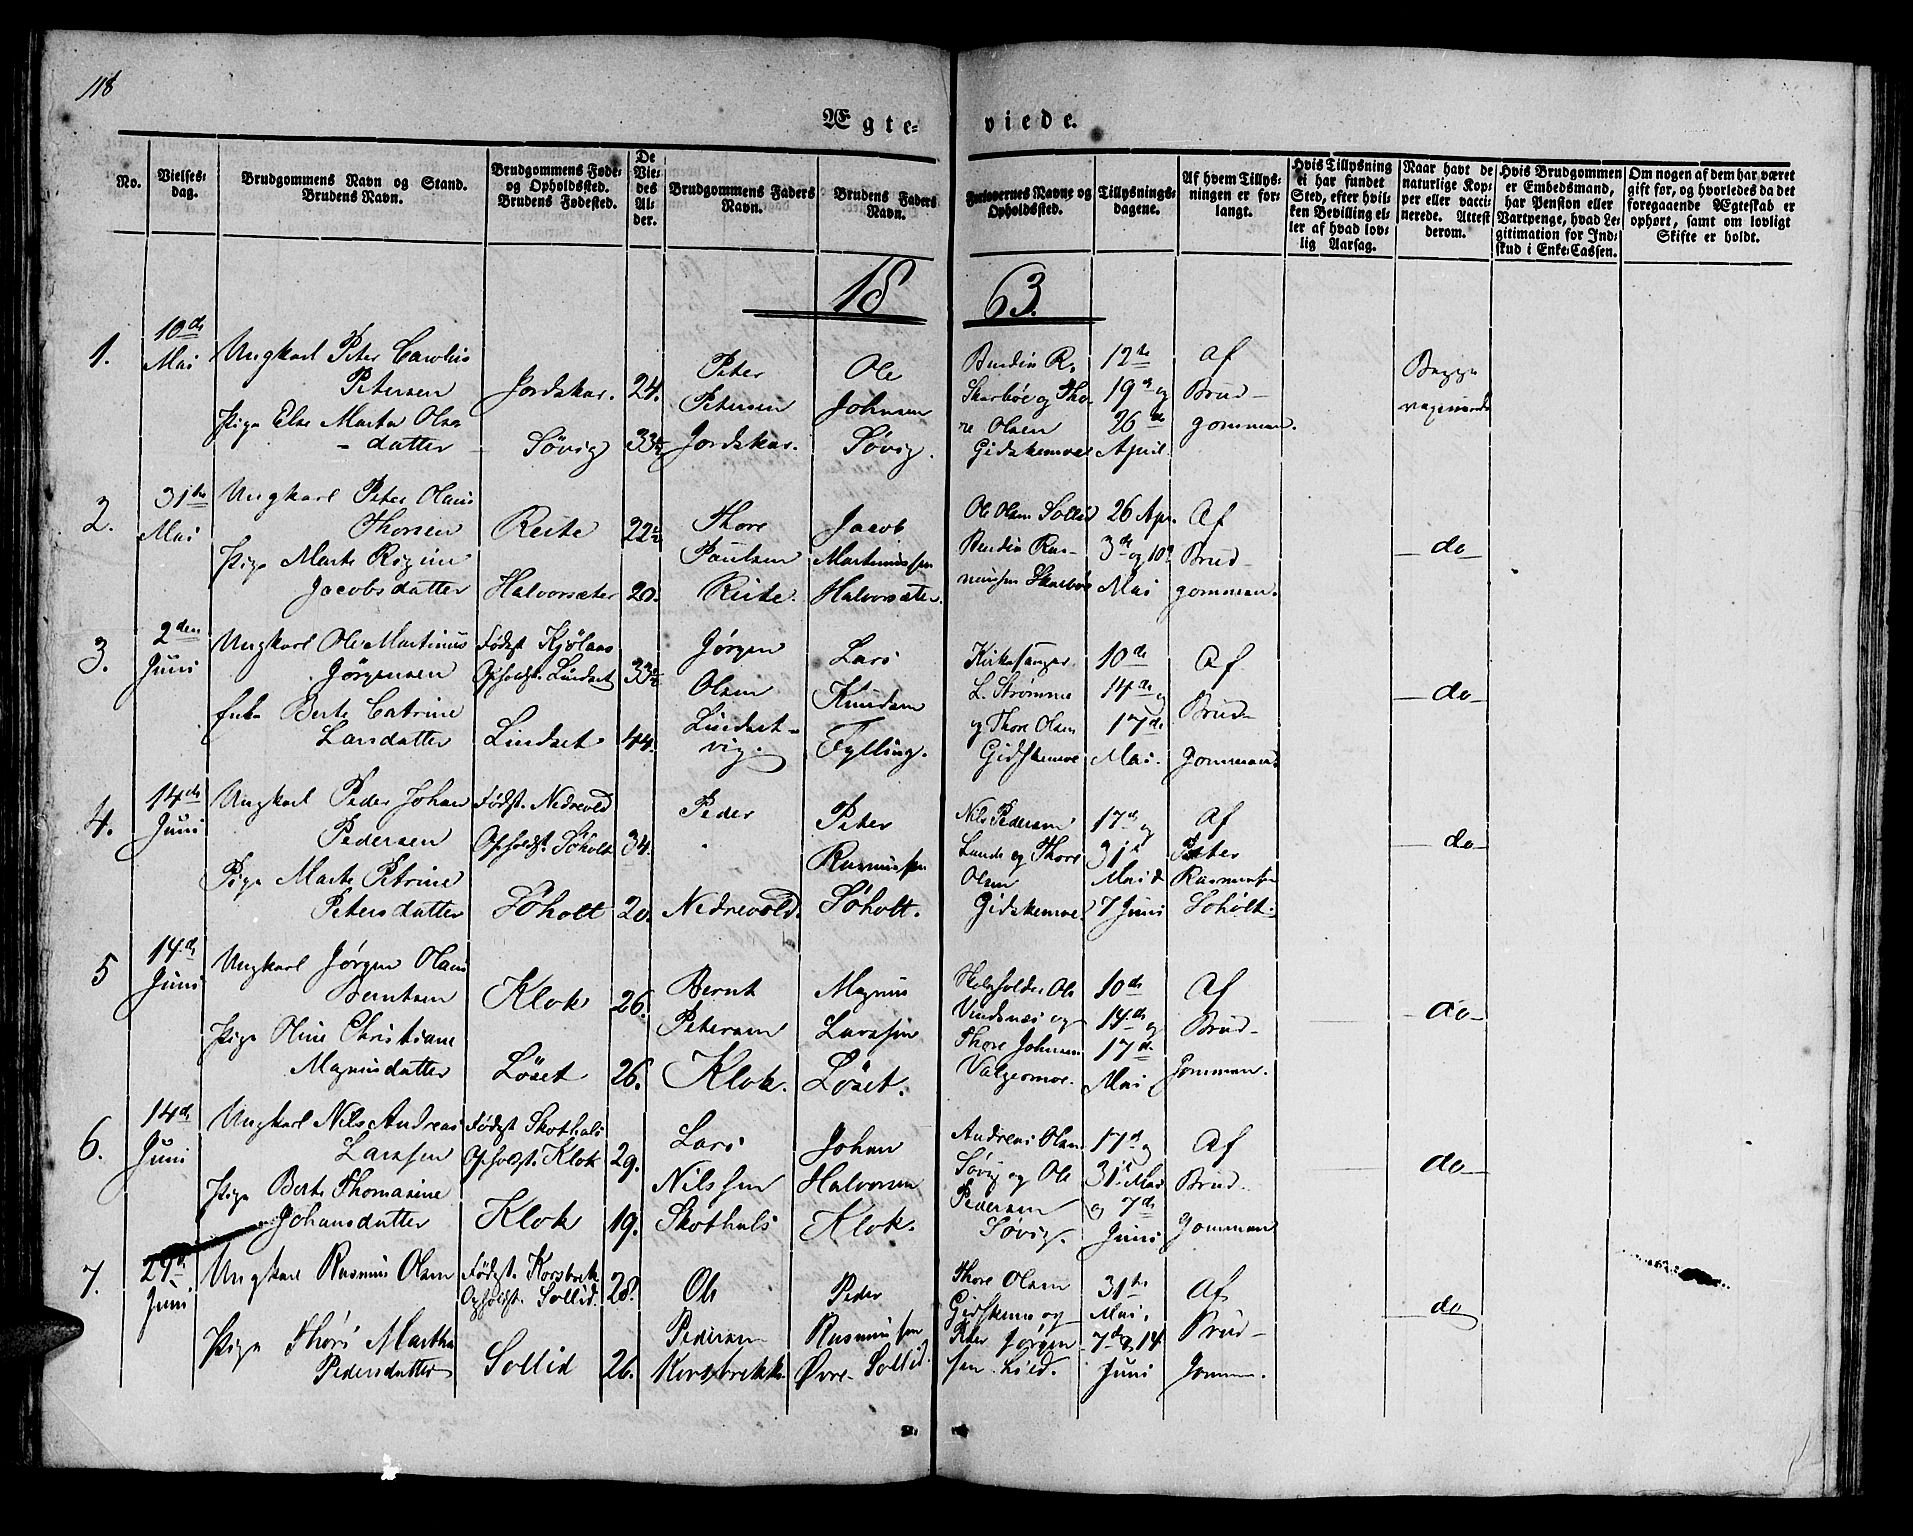 118
Ægte- viede.
No.
Vielses-
dag.
Brudgommens Navn og Stand.
Brudens Navn.
Brudgommens Føde-
og Opholdssted.
Brudens Fødested.
De
Vie-
des
Al-
der.
Brudgommens Faders
Navn.
Brudens Faders
Navn.
Forlovernes Navne og
Opholdssted.
Tillysnings-
dagene.
Af hvem Tillys-
ningen er for-
langt.
Hvis Tillysning
ei har fundet
Sted, efter hvil-
ken Bevilling el-
ler af hvad lov-
lig Aarsag.
Naar havt de
naturlige Kop-
per eller vacci-
nerede. Attest
derom.
Hvis Brudgommen
er Embedsmand,
har Pension eller
Vartpenge, hvad Le-
gitimation for Ind-
skud i Enke-Cassen.
Om nogen af dem har været
gift før, og hvorledes da det
foregaaende Ægteskab er
ophørt, samt om lovligt
Skifte er holdt.
1863.
1.
10de
Mai
Ungkarl Peter Carolus
Petersen
Pige Else Marta Ols-
datter
Jordskar.
Søvig
24.
33½
Peter
Petersen
Jordskar.
Ole
Johnsen
Søvig.
Bendix R.
Skarbøe og Tho-
re Olsen
Gidskemoe
12te
19de og
26de
April.
Af
Brud-
gommen.
Begge
vaxinerede
2.
31te
Mai
Ungkarl Peter Olaus
Thorsen
Pige Marte Regine
Jacobsdatter
Reite
Halvorsæter
22½
20.
Thore
Paulsen
Reite.
Jacob
Martinussen
Halvorsæter.
Ole Olsen Sollid
Bendix Ras-
mussen Skarbøe
26 Apr.
3de og 10de
Mai
Af
Brud-
gommen.
do
3.
2den
Juni
Ungkarl Ole Martinus
Jørgensen
Enke Berte Catrine
Larsdatter
Født. Kjølaas
Opholdst. Lindset
Lindset
33½
44.
Jørgen
Olsen
Lindset-
vig.
Lars
Knudsen
Fylling.
Kirkesanger
L. Strømme
og Thore Olsen
Gidskemoe
10de
14de og
17de
Mai.
Af
Brud-
gommen
do
4.
14de
Juni
Ungkarl Peder Johan
Pedersen
Pige Marte Petrine
Petersdatter
Fødst. Nedrevold
Opholdst. Søholt
Søholt
34.
20.
Peder
Nedrevold.
Peter
Rasmussen
Søholt.
Nils Pedersen
Lande og Thore
Olsen
Gidskemoe
17de og
31te
Mai &
7 Juni
Af
Peter
Rasmussen
Søholt.
do
5
14de
Juni
Ungkarl Jørgen Olaus
Berntsen
Pige Oline Christiane
Magnusdatter
Klok
Løset
26.
26.
Bernt
Petersen
Klok.
Magnus
Larssen
Løset.
Skoleholder Ole
Vindsnæs og
Thore Johnsen
Valgermoe.
10de
14de og
17de
Mai
Af
Brud-
gommen.
do
6.
14de
Juni
Ungkarl Nils Andreas
Larssen
Pige Berte Thomasine
Johansdatter
Fødst. Skothals
Opholdst. Klok
Klok
29.
19.
Lars
Nilssen
Skothals
Johan
Halvorsen
Klok.
Andreas Olsen
Søvig og Ole
Pedersen
Søvig.
17de og
31te Mai
og 7de
Juni
Af
Brud-
gommen
do
7.
29de
Juni
Ungkarl Rasmus Olsen
Pige Thøri Martha
Pedersdatter
Fødst. Korsbrekke
Opholdst. Sollid.
Sollid
28.
26.
Ole
Pedersen
Korsbrekke
Peder
Rasmussen
Øvre-Sollid.
Thore Olsen
Gidskemoe og
Peter Jørgen-
sen Lied.
31te
Mai,
7de og 14
Juni
Af
Brud-
gommen.
do